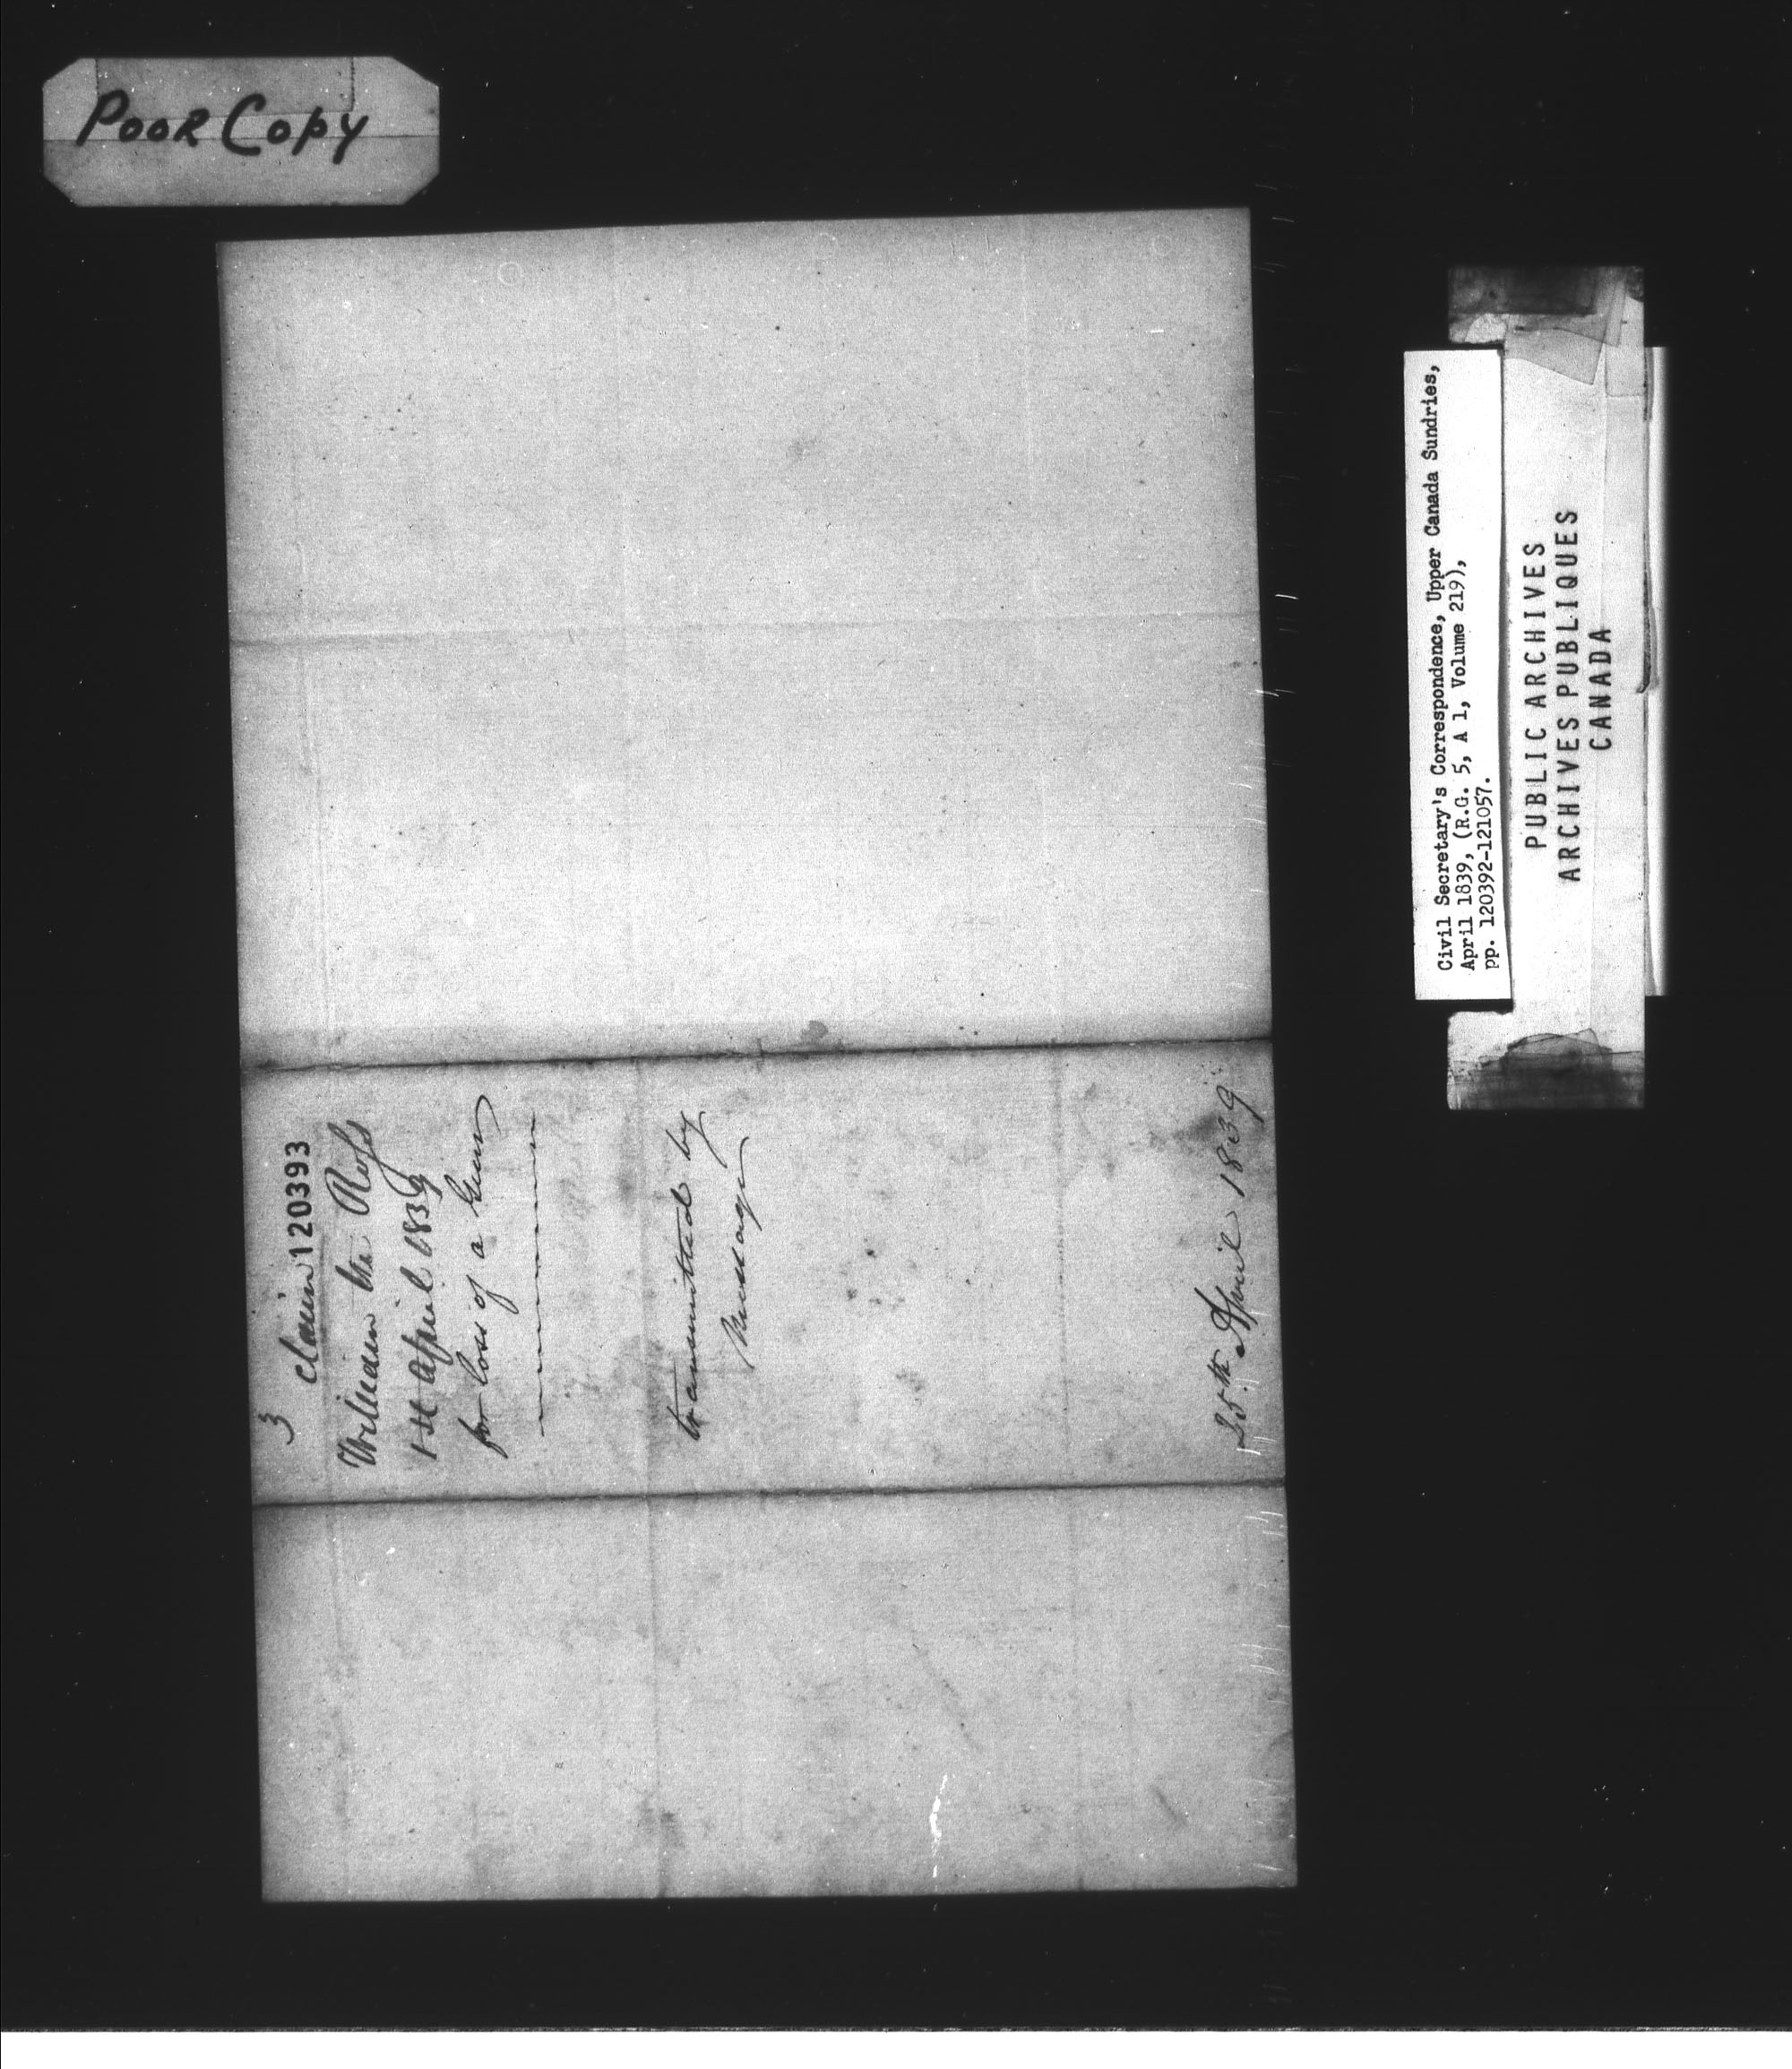 Poor Copy
3
claim
120393
William Mc Ross
1st April 1839
for loss of a Gun
transmitted by
Message
25th April 1839
Civil Secretary's Correspondence, Upper Canada Sundries,
April 1839, (R.G. 5, A 1, Volume 219),
pp. 120392-121057.
PUBLIC ARCHIVES
ARCHIVES PUBLIQUES
CANADA